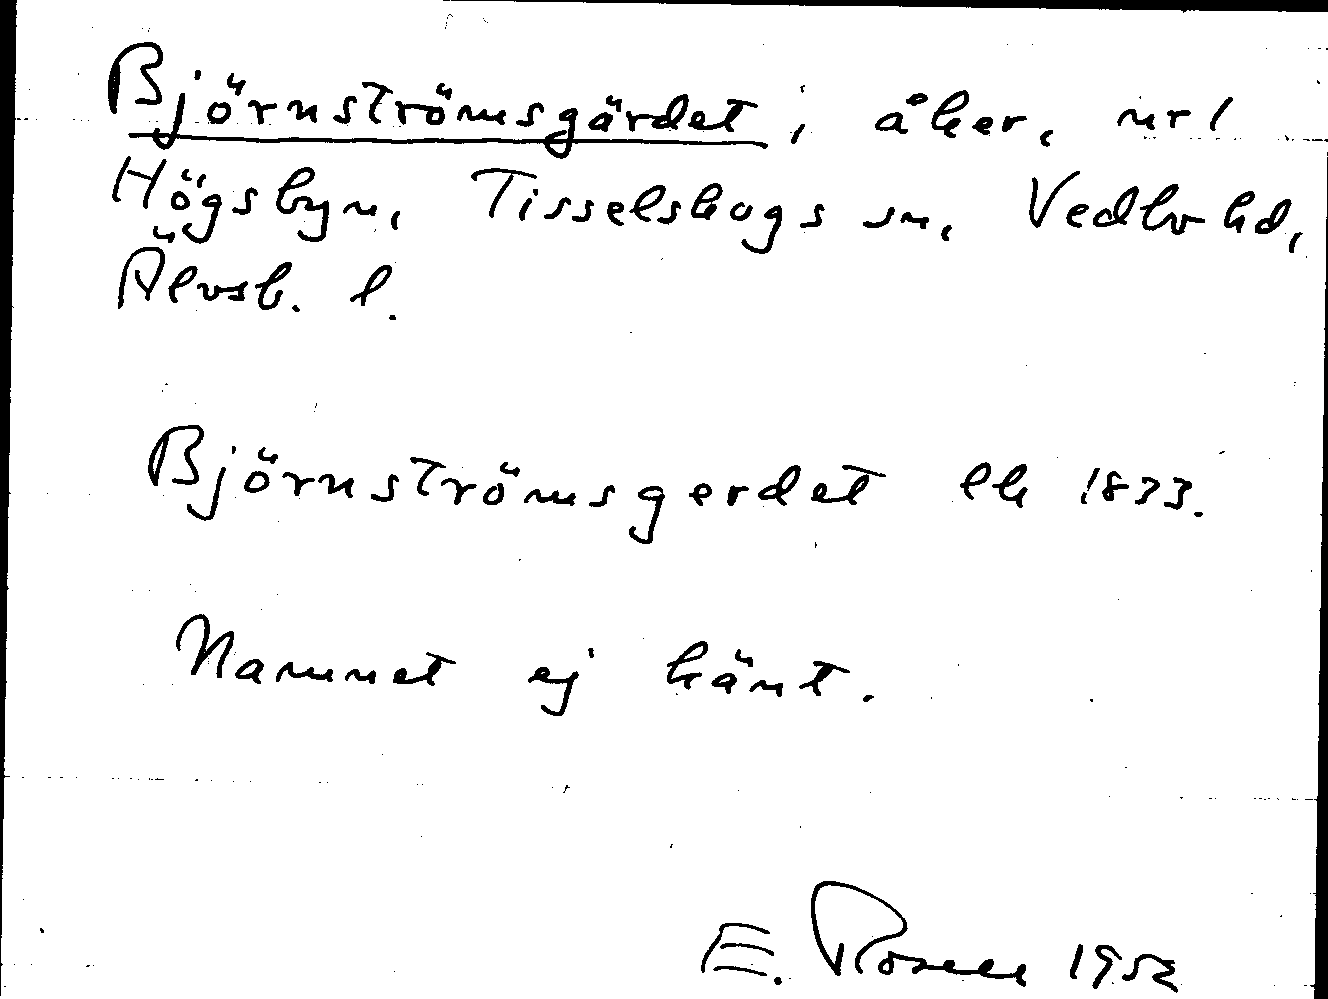 Björnströmsgärdet, åker, nr 1
Högsbyn, Tisselskogs sn, Vedbo hd,
Älvsb. l.
Björnströmsgerdet lk 1833.
Namnet ej känt.
E. Rosell 1952